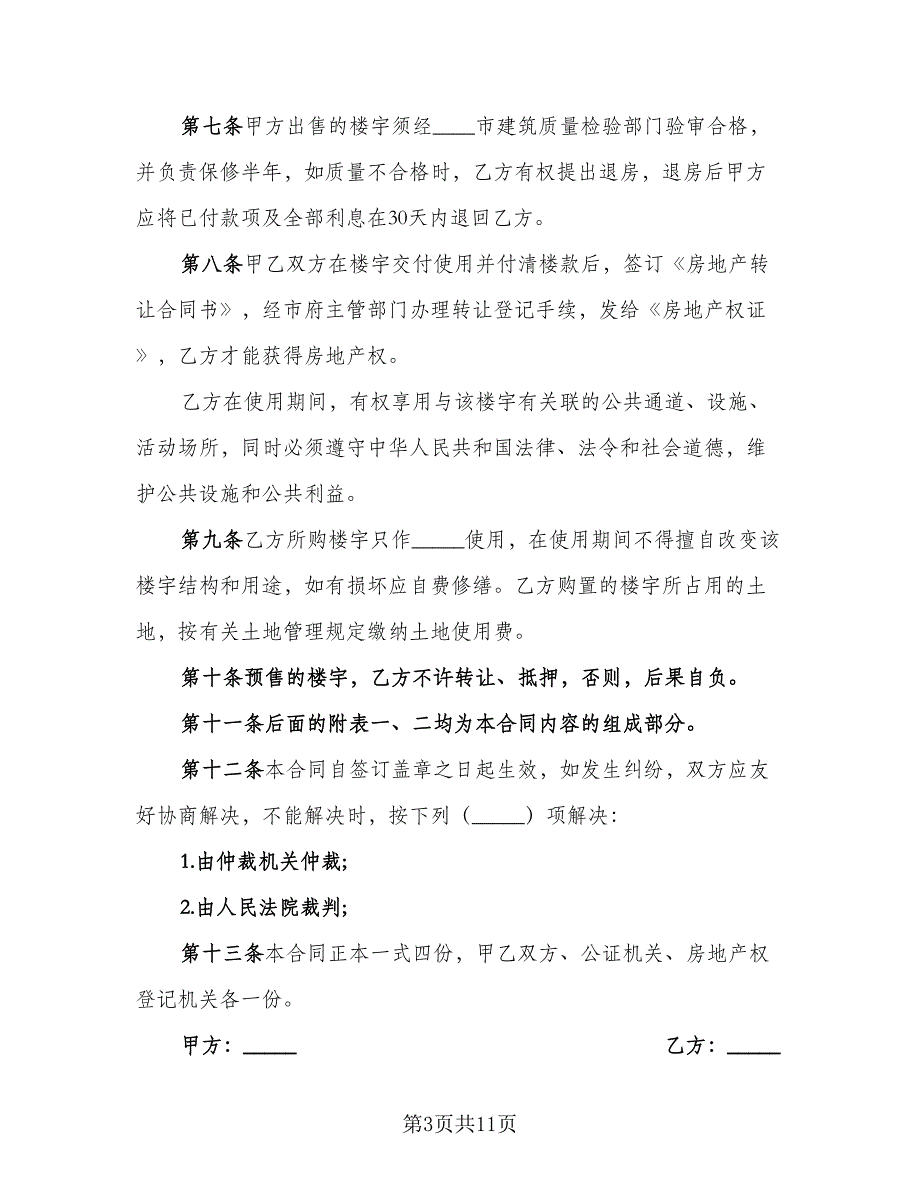 第七条甲方出售的楼宇须经____市建筑质量检验部门验审合格，
并负责保修半年，如质量不合格时，乙方有权提出退房，退房后甲方
应将已付款项及全部利息在30天内退回乙方。
第八条甲乙双方在楼宇交付使用并付清楼款后，签订《房地产转
让合同书》，经市府主管部门办理转让登记手续，发给《房地产权证
》，乙方才能获得房地产权。
乙方在使用期间，有权享用与该楼宇有关联的公共通道、设施、
活动场所，同时必须遵守中华人民共和国法律、法令和社会道德，维
护公共设施和公共利益。
第九条乙方所购楼宇只作_____使用，在使用期间不得擅自改变该
楼宇结构和用途，如有损坏应自费修缮。乙方购置的楼宇所占用的土
地，按有关土地管理规定缴纳土地使用费。
第十条预售的楼宇，乙方不许转让、抵押，否则，后果自负。
第十一条后面的附表一、二均为本合同内容的组成部分。
第十二条本合同自签订盖章之日起生效，如发生纠纷，双方应友
好协商解决，不能解决时，按下列（_____）项解决：
1.由仲裁机关仲裁;
2.由人民法院裁判;
第十三条本合同正本一式四份，甲乙双方、公证机关、房地产权
登记机关各一份。
甲方：_____ 乙方：_____
第3页共11页